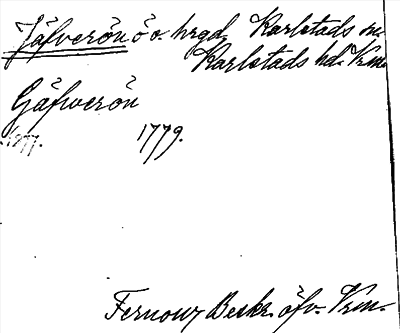 Jäfverön ö o. hrgd, Karlstads sn.
Karlstads hd. Vrm
Gäfwerön
1777. 1779.
Fernow, Beskr. öfv. Vrm.